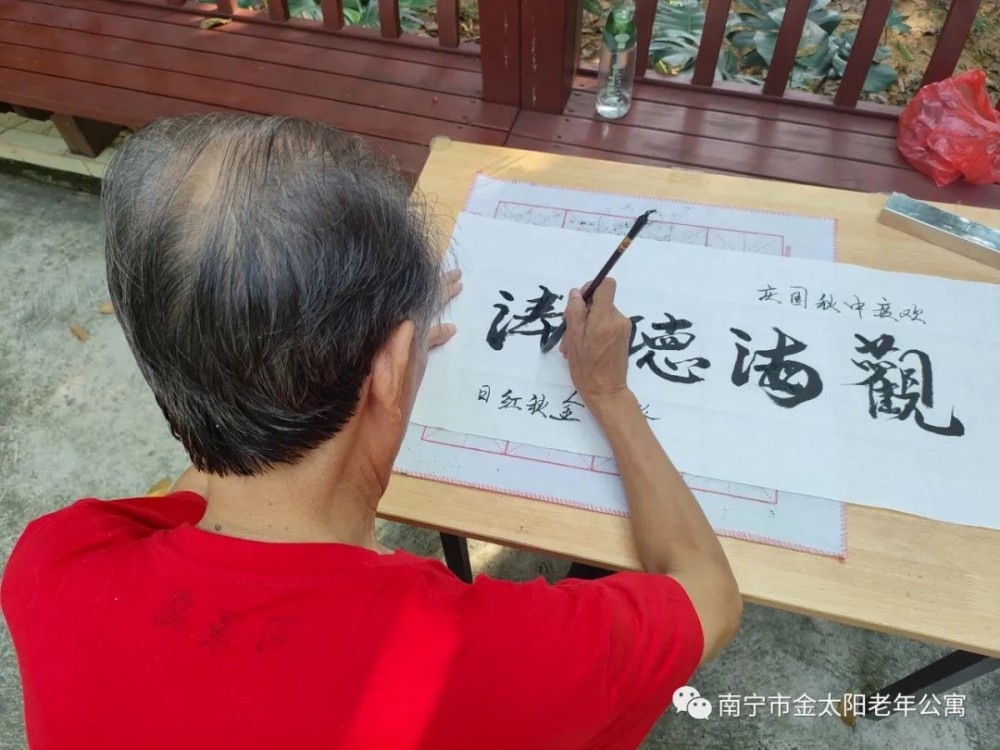 欢度中秋国庆
觀海聽涛
金秋红日
南宁市金太阳老年公寓